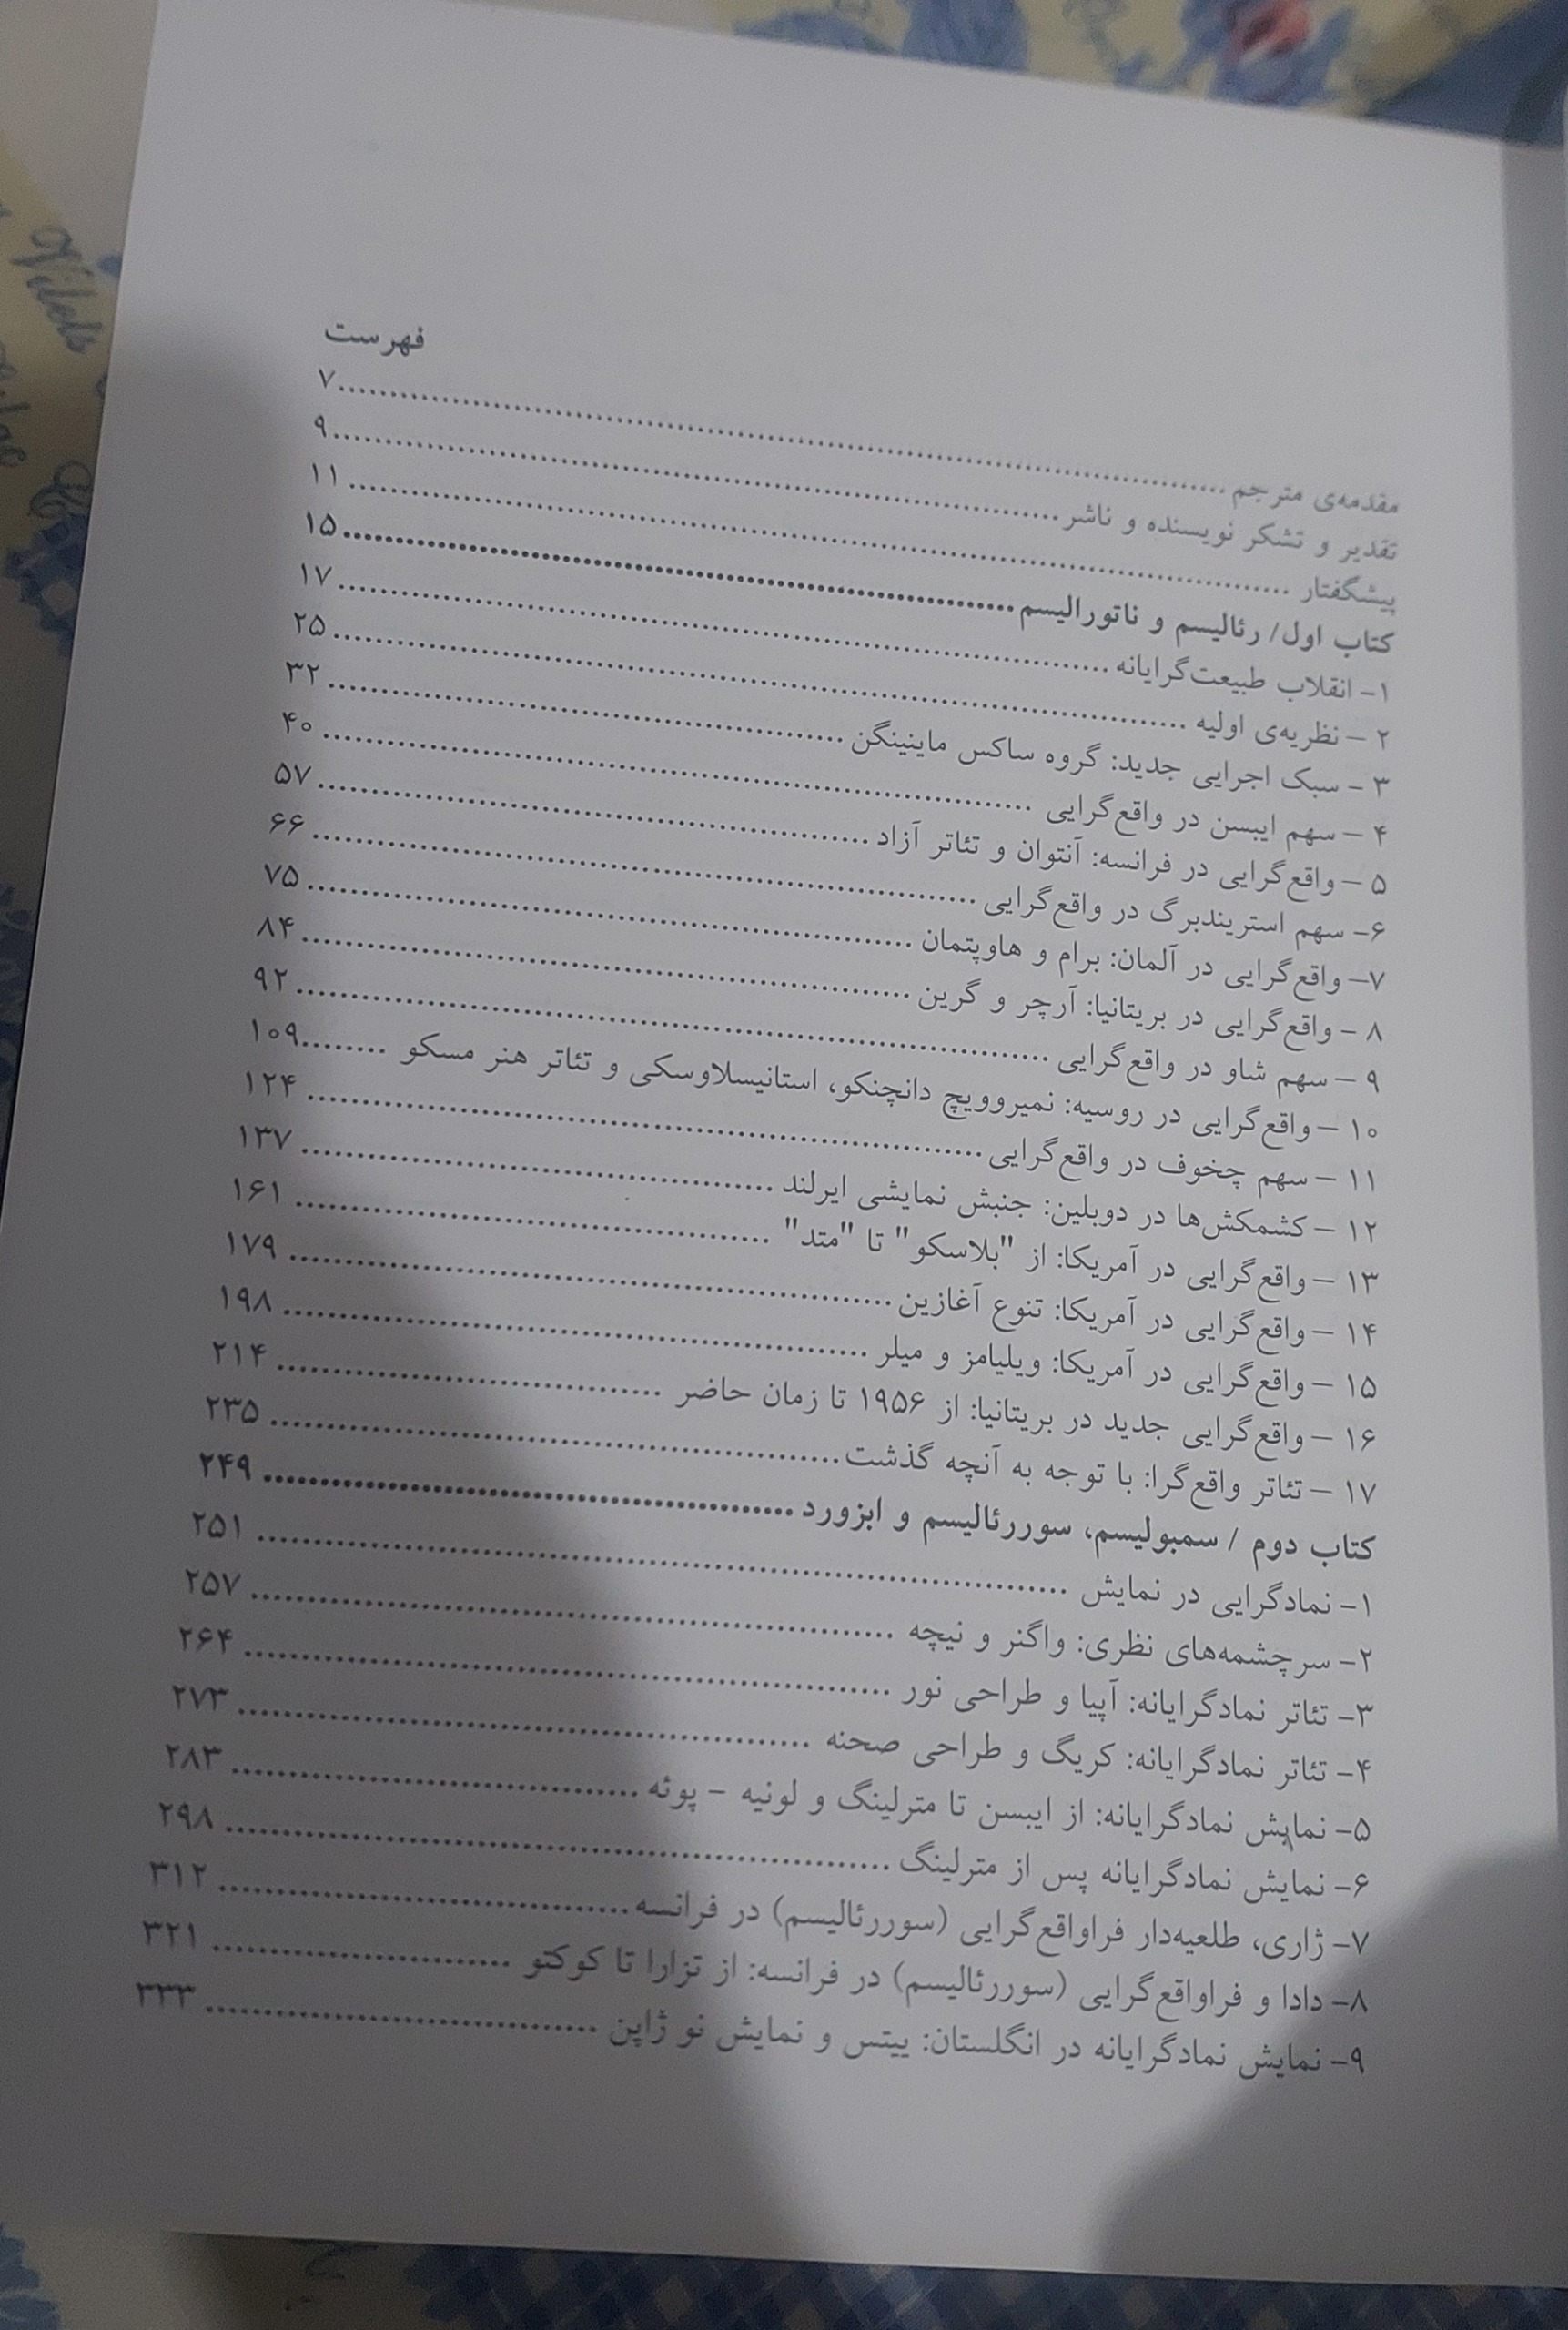 فهرست
مقدمه‌ی مترجم ........ ۷
تقدیر و تشکر نویسنده و ناشر ........ ۹
پیشگفتار ........ ۱۱
کتاب اول/ رئالیسم و ناتورالیسم ........ ۱۵
۱- انقلاب طبیعت‌گرایانه ........ ۱۷
۲ - نظریه‌ی اولیه ........ ۲۵
۳ - سبک اجرایی جدید: گروه ساکس ماینینگن ........ ۳۲
۴ - سهم ایبسن در واقع‌گرایی ........ ۴۰
۵ - واقع‌گرایی در فرانسه: آنتوان و تئاتر آزاد ........ ۵۷
۶- سهم استریندبرگ در واقع‌گرایی ........ ۶۶
۷- واقع‌گرایی در آلمان: برام و هاوپتمان ........ ۷۵
۸ - واقع‌گرایی در بریتانیا: آرچر و گرین ........ ۸۴
۹ - سهم شاو در واقع‌گرایی ........ ۹۲
۱۰ - واقع‌گرایی در روسیه: نمیروویچ دانچنکو، استانیسلاوسکی و تئاتر هنر مسکو ........ ۱۰۹
۱۱ - سهم چخوف در واقع‌گرایی ........ ۱۲۴
۱۲ - کشمکش‌ها در دوبلین: جنبش نمایشی ایرلند ........ ۱۳۷
۱۳ - واقع‌گرایی در آمریکا: از "بلاسکو" تا "متد" ........ ۱۶۱
۱۴ - واقع‌گرایی در آمریکا: تنوع آغازین ........ ۱۷۹
۱۵ - واقع‌گرایی در آمریکا: ویلیامز و میلر ........ ۱۹۸
۱۶ - واقع‌گرایی جدید در بریتانیا: از ۱۹۵۶ تا زمان حاضر ........ ۲۱۴
۱۷ - تئاتر واقع‌گرا: با توجه به آنچه گذشت ........ ۲۳۵
کتاب دوم / سمبولیسم، سوررئالیسم و ابزورد ........ ۲۴۹
۱- نمادگرایی در نمایش ........ ۲۵۱
۲- سرچشمه‌های نظری: واگنر و نیچه ........ ۲۵۷
۳- تئاتر نمادگرایانه: آپیا و طراحی نور ........ ۲۶۴
۴- تئاتر نمادگرایانه: کریگ و طراحی صحنه ........ ۲۷۳
۵- نمایش نمادگرایانه: از ایبسن تا مترلینگ و لونیه - پوئه ........ ۲۸۳
۶- نمایش نمادگرایانه پس از مترلینگ ........ ۲۹۸
۷- ژاری، طلعیه‌دار فراواقع‌گرایی (سوررئالیسم) در فرانسه ........ ۳۱۲
۸- دادا و فراواقع‌گرایی (سوررئالیسم) در فرانسه: از تزارا تا کوکتو ........ ۳۲۱
۹- نمایش نمادگرایانه در انگلستان: ییتس و نمایش نو ژاپن ........ ۳۳۳